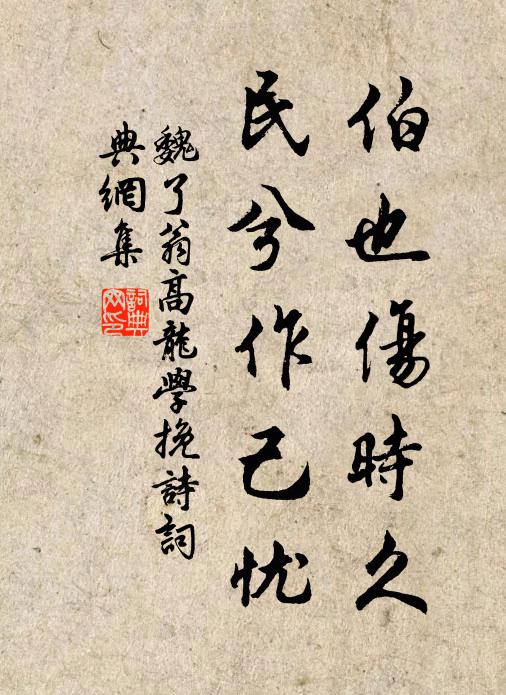 伯也傷時久
民兮作己忧
魏了翁高龍學挽詩詞
典網集
詞典
网印